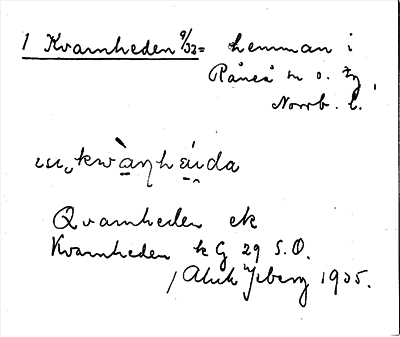 1 Kvarnheden 9/32 = hemman i
Råneå sn o. tg,
Norrb. l.
kwàṇhä́i̯da
Qvarnheden ek
Kvarnheden k G 29 S.O.
1905.